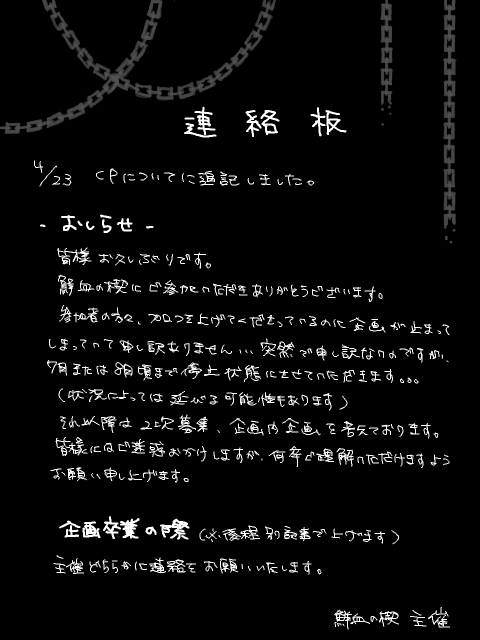 連絡板
4/23 CPについてに追記しました。
- おしらせ -
皆様 お久しぶりです。
鮮血の楔にご参加いただきありがとうございます。
参加者の方々、カロンを上げてくださっているのに企画が止まって
しまっていて申し訳ありません… 突然で申し訳ないのですが、
7月または8月頃まで停止状態にさせていただきます。。。
(状況によっては延びる可能性もあります)
それ以降は2次募集、企画内企画を考えております。
皆様にはご迷惑おかけしますが、何卒ご理解いただけますよう
お願い申し上げます。
企画卒業の際 (※後程別記事で上げます)
主催どちらかに連絡をお願いいたします。
鮮血の楔 主催